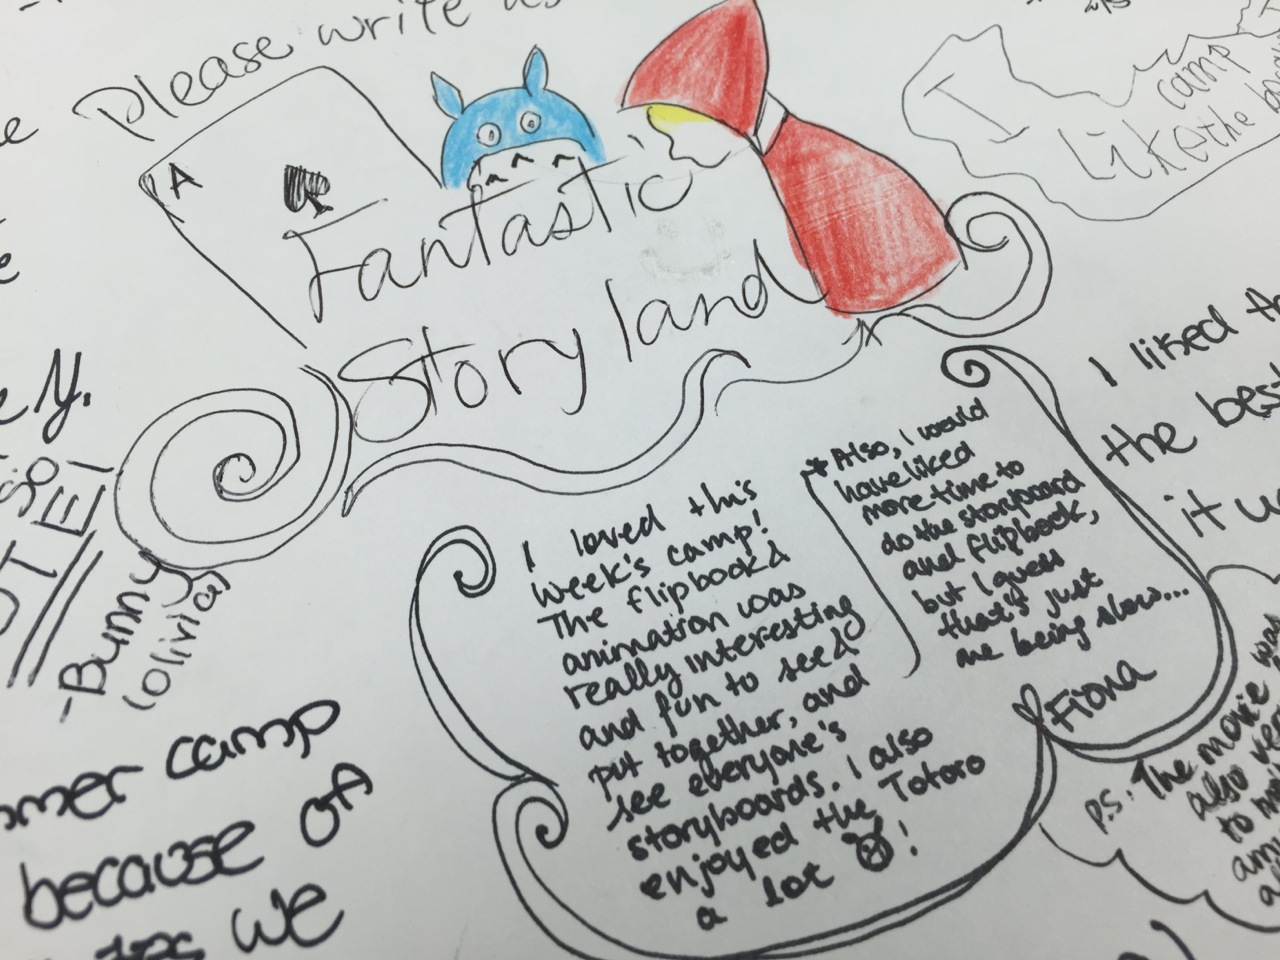 Please write
A
Fantastic
Storyland
I
camp
Like the
I liked
the best
I loved this
week's camp!
The flipbook &
animation was
really interesting
and fun to see &
put together, and
see everyone's
storyboards. I also
enjoyed the Totoro
a lot !
*Also, I would
have liked
more time to
do the storyboard
and flipbook,
but I guess
that's just
me being slow...
Fiona
-Bunny
(olivia)
camp
because of
we
P.S. The movie was
also
to